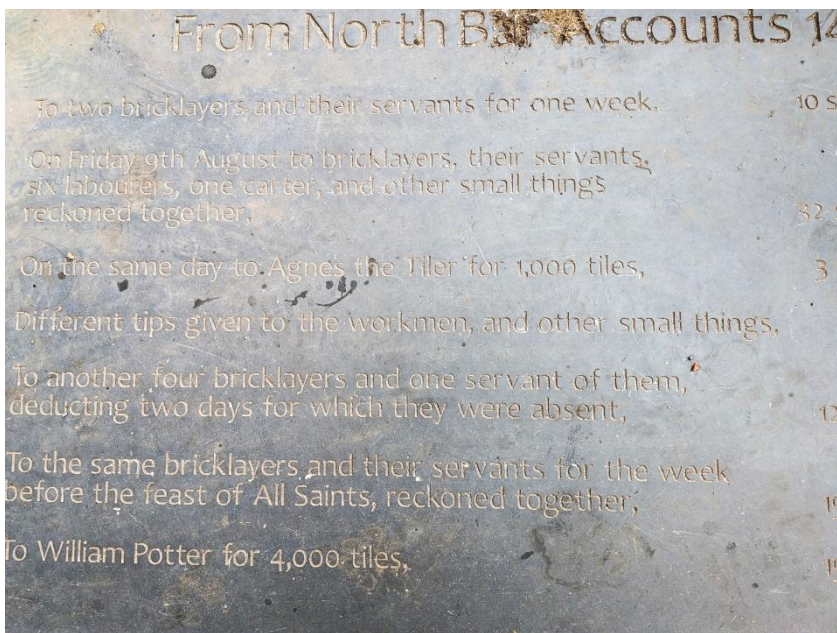 From North Bar Accounts 14
To two bricklayers and their servants for one week, 10 s
On Friday 9th August to bricklayers, their servants,
six labourers, one carter, and other small things
reckoned together, 32
On the same day to Agnes the Tiler for 1,000 tiles, 3
Different tips given to the workmen, and other small things,
To another four bricklayers and one servant of them,
deducting two days for which they were absent, 12
To the same bricklayers and their servants for the week
before the feast of All Saints, reckoned together,
To William Potter for 4,000 tiles,